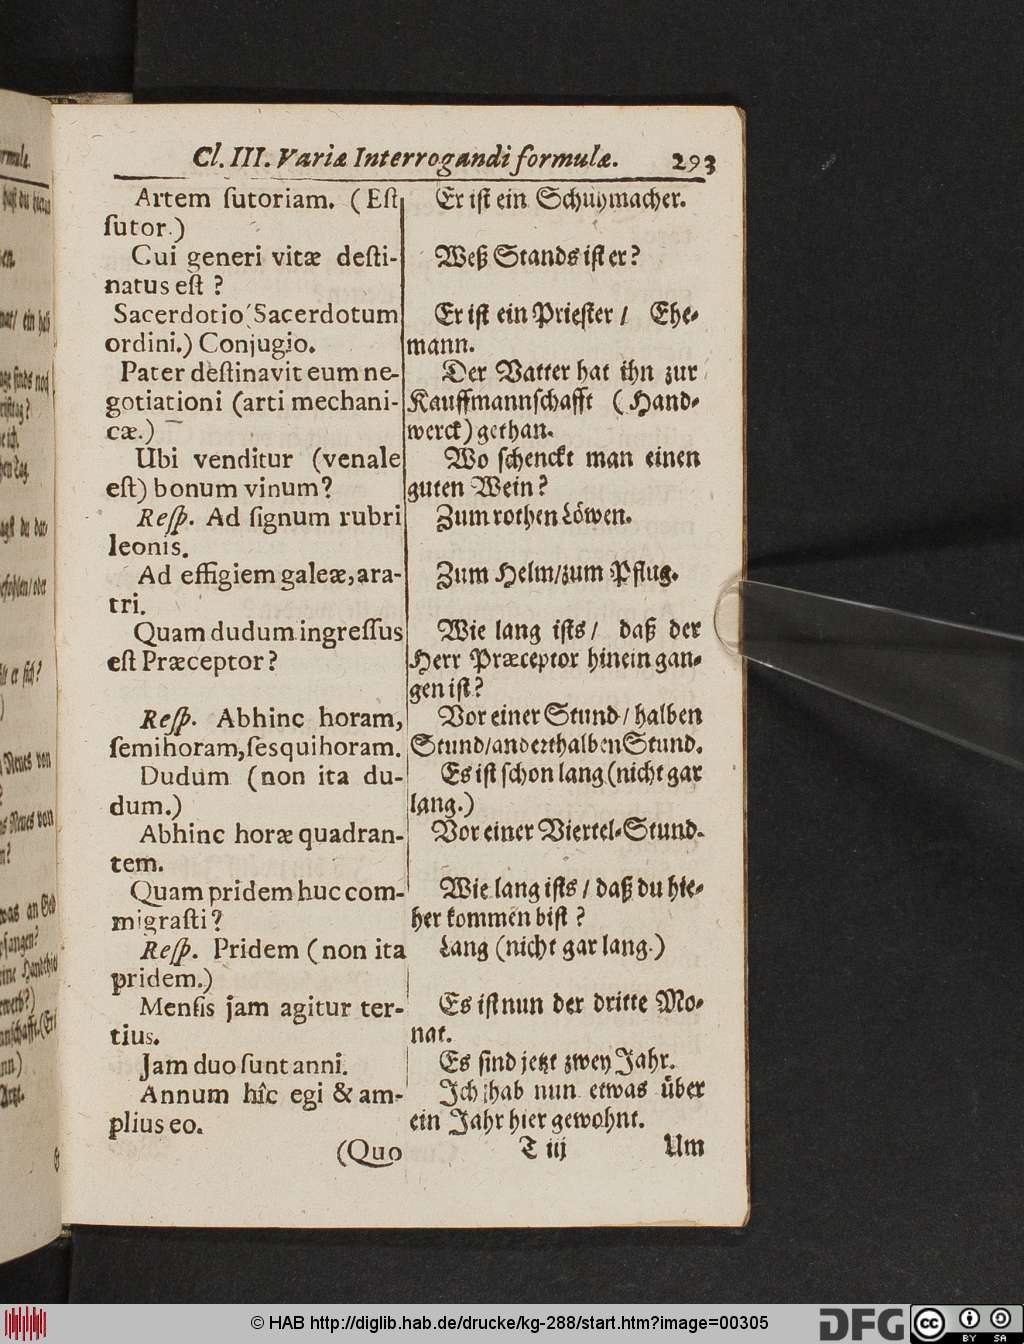 Cl. III. Variæ Interrogandi formulæ. 293
Artem sutoriam. (Est
sutor.)
Cui generi vitæ desti-
natus est ?
Sacerdotio (Sacerdotum
ordini.) Conjugio.
Pater destinavit eum ne-
gotiationi (arti mechani-
cæ.)
Ubi venditur (venale
est) bonum vinum?
Resp. Ad signum rubri
leonis.
Ad effigiem galeæ, ara-
tri.
Quam dudum ingressus
est Præceptor?
Resp. Abhinc horam,
semihoram, sesquihoram.
Dudum (non ita du-
dum.)
Abhinc horæ quadran-
tem.
Quam pridem huc com-
migrasti?
Resp. Pridem (non ita
pridem.)
Mensis jam agitur ter-
tius.
Jam duo sunt anni.
Annum hîc egi & am-
plius eo.
(Quo
Er ist ein Schuhmacher.
Weß Stands ist er?
Er ist ein Priester / Ehe-
mann.
Der Vatter hat ihn zur
Kauffmannschafft (Hand-
werck) gethan.
Wo schenckt man einen
guten Wein?
Zum rothen Löwen.
Zum Helm/zum Pflug.
Wie lang ists / daß der
Herr Præceptor hinein gan-
gen ist?
Vor einer Stund / halben
Stund/anderthalben Stund.
Es ist schon lang (nicht gar
lang.)
Vor einer Viertel-Stund.
Wie lang ists / daß du hie-
her kommen bist ?
Lang (nicht gar lang.)
Es ist nun der dritte Mo-
nat.
Es sind jetzt zwey Jahr.
Ich hab nun etwas über
ein Jahr hier gewohnt.
T iij Um
© HAB http://diglib.hab.de/drucke/kg-288/start.htm?image=00305
DFG
cc
BY SA